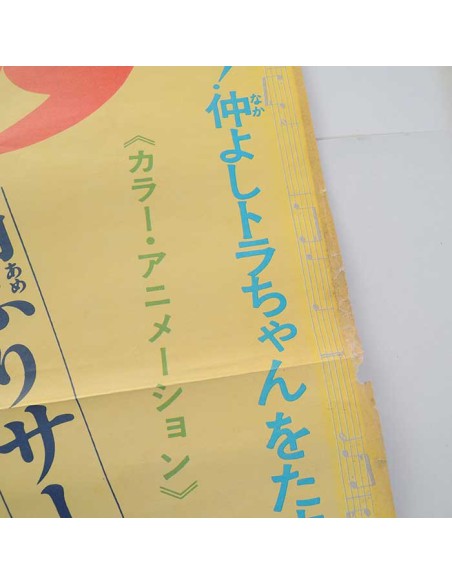 ！仲よしトラちゃんをた
なか
《カラー・アニメーション》
ふりサー
あめ